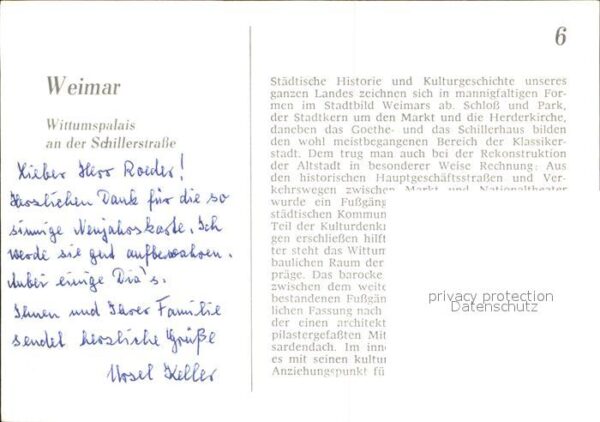 6
Weimar
Wittumspalais
an der Schillerstraße
Lieber Herr Roeder!
Herzlichen Dank für die so
sinnige Neujahrskarte. Ich
werde sie gut aufbewahren.
Anbei einige Dia's.
Ihnen und Ihrer Familie
sendet herzliche Grüße
Ursel Keller
Städtische Historie und Kulturgeschichte unseres
ganzen Landes zeichnen sich in mannigfaltigen For-
men im Stadtbild Weimars ab. Schloß und Park,
der Stadtkern um den Markt und die Herderkirche,
daneben das Goethe- und das Schillerhaus bilden
den wohl meistbegangenen Bereich der Klassiker-
stadt. Dem trug man auch bei der Rekonstruktion
der Altstadt in besonderer Weise Rechnung: Aus
den historischen Hauptgeschäftsstraßen und Ver-
kehrswegen zwischen Markt und Nationaltheater
wurde ein Fußgäng
städtischen Kommun
Teil der Kulturdenk
gen erschließen hilft
ter steht das Wittum
baulichen Raum der
präge. Das barocke
zwischen dem weite
bestandenen Fußgän
lichen Fassung nach
der einen architekt
pilastergefaßten Mit
sardendach. Im inne
es mit seinen kultur
Anziehungspunkt fü
privacy protection
Datenschutz